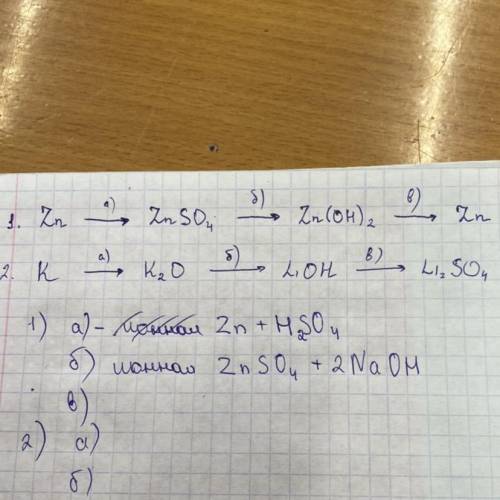 1. Zn а)→ ZnSO₄ б)→ Zn(OH)₂ в)→ Zn
2. K а)→ K₂O б)→ LiOH в)→ Li₂SO₄
1) а) - Zn + H₂SO₄
б) ионная ZnSO₄ + 2NaOH
в)
2) а)
б)